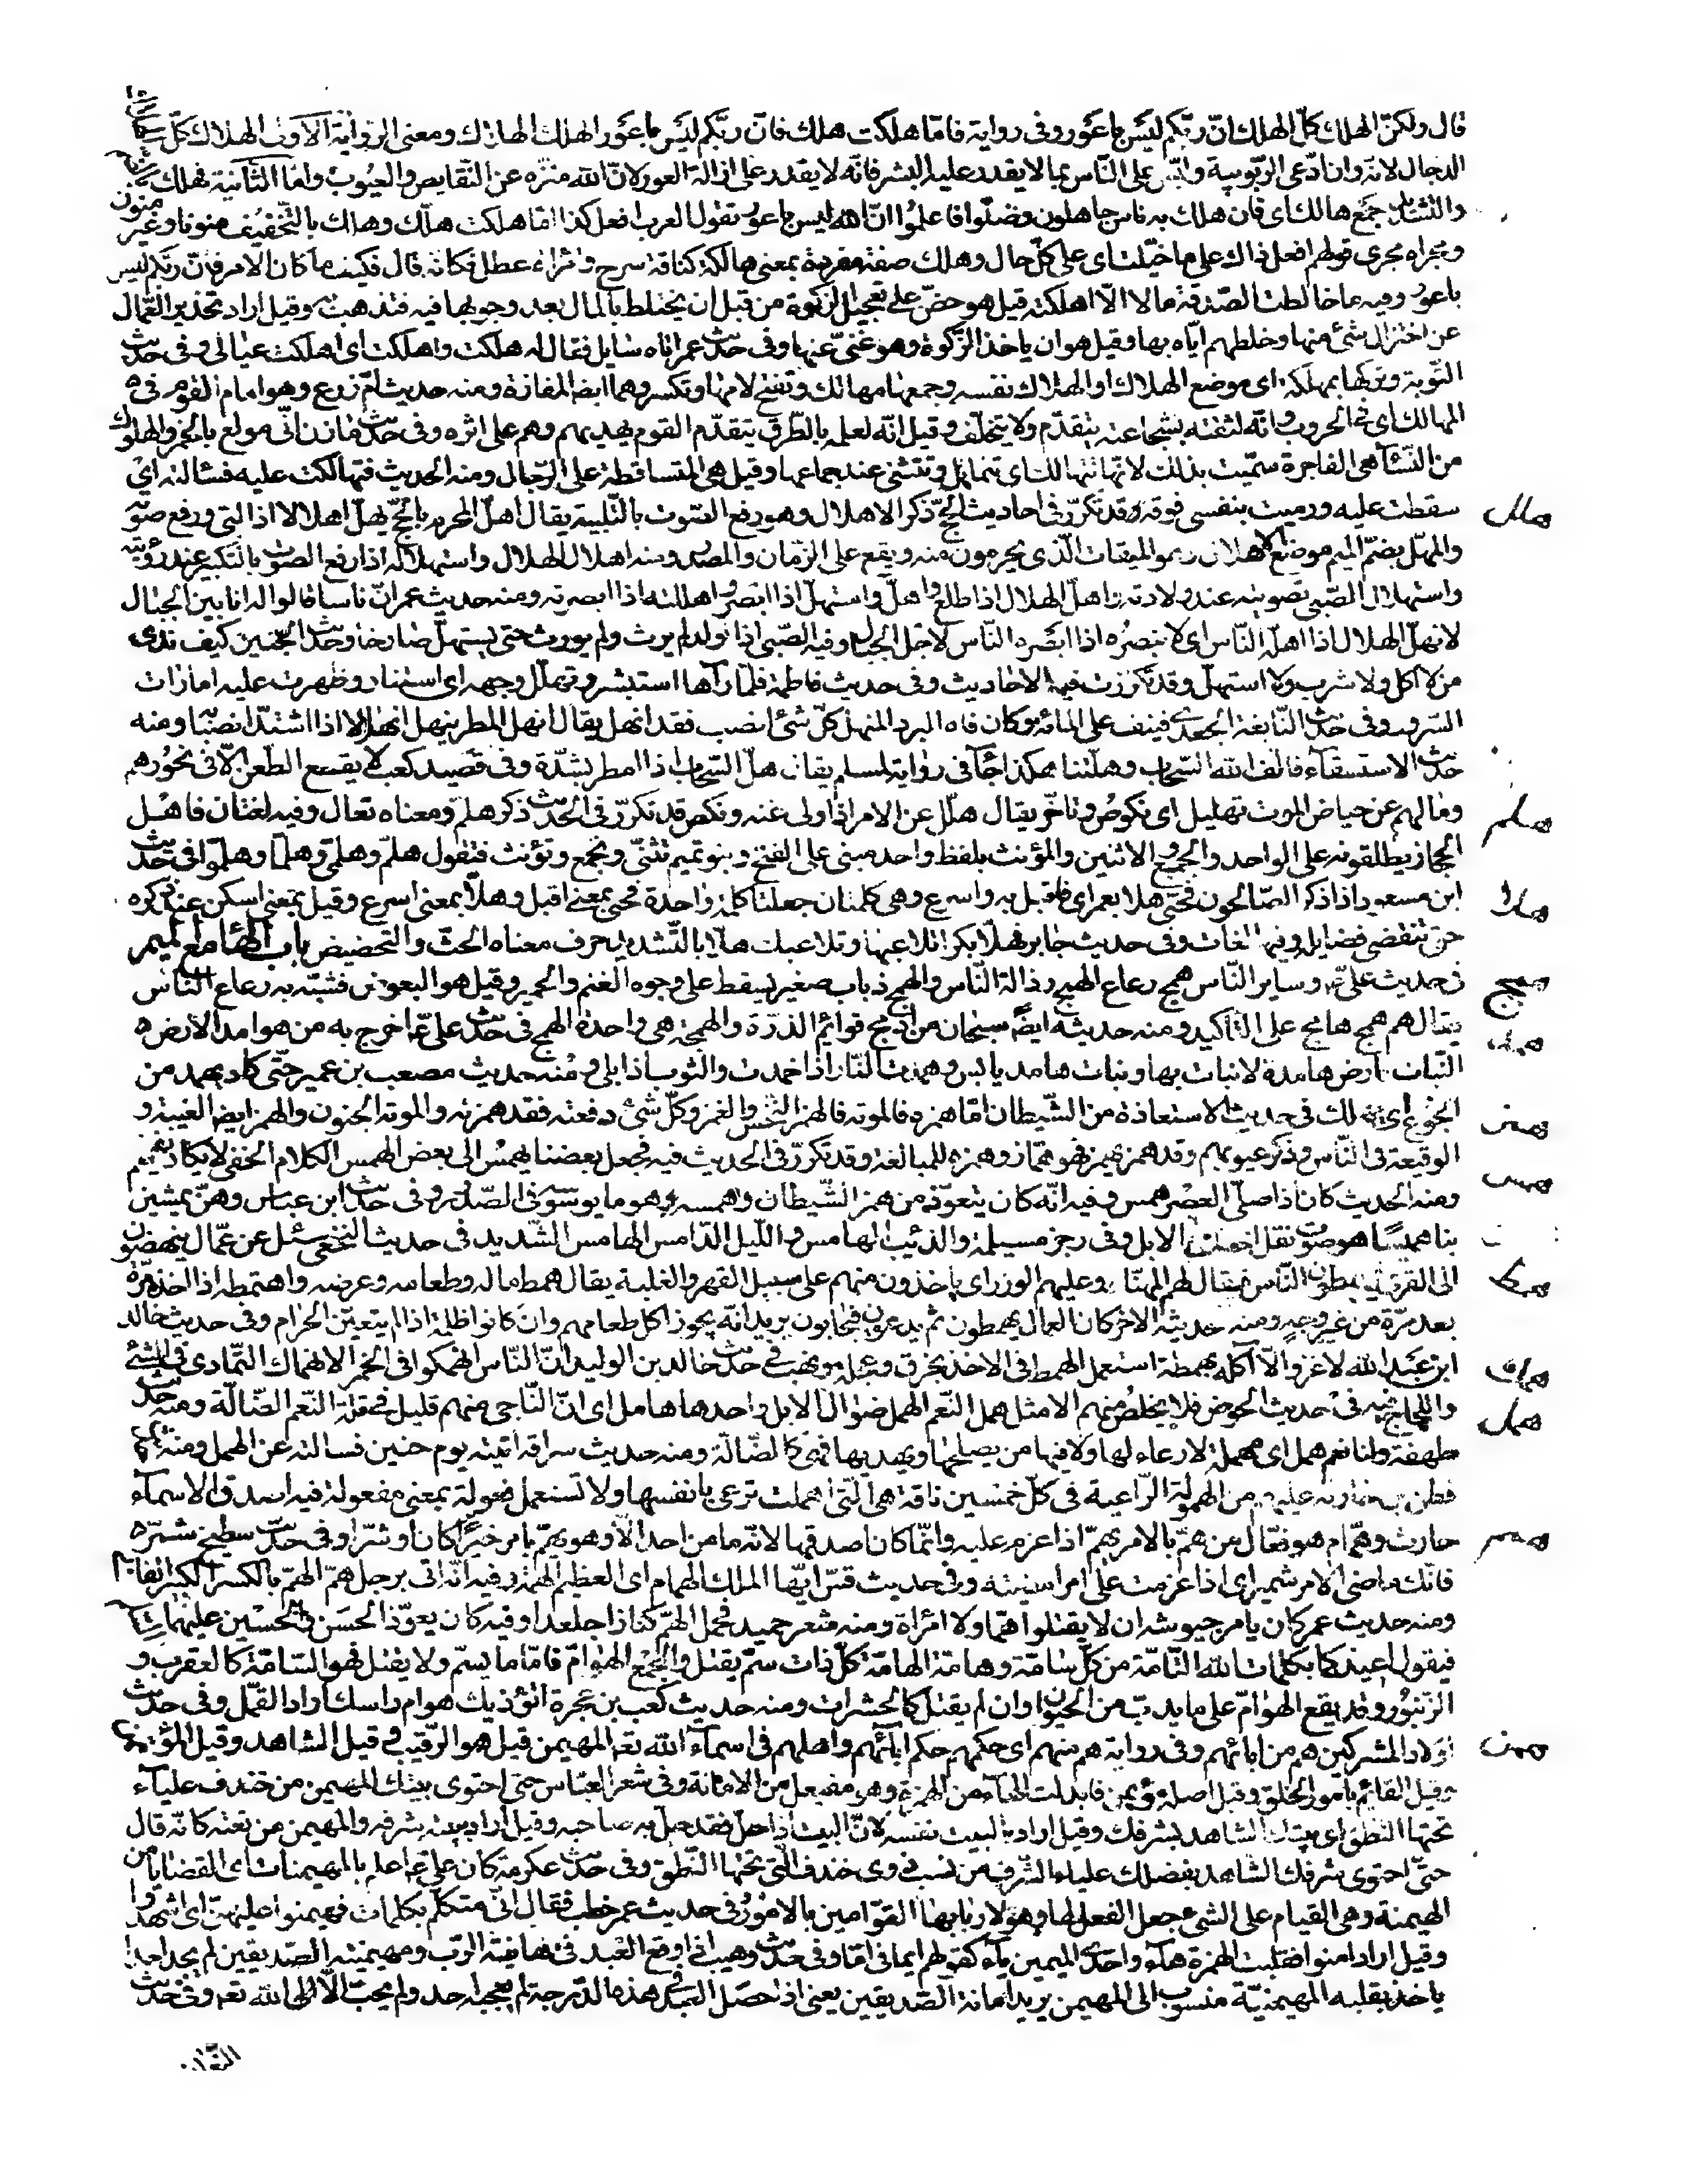 قال ولكن الهلك كل الهلك ان ربكم ليس باعور وفى رواية فاما هلكت هلك فان ربكم ليس باعور الهلك الهلاك ومعنى الرواية الاولى الهلاك كل
الدجال لانه وان ادعى الربوبية ولبس على الناس بما لا يقدر عليه البشر فانه لا يقدر على ازالة العور لان الله منزه عن النقايص والعيوب واما الثانية فهلك
والتشديد جمع هالك اى فان هلك به ناس جاهلون وضلوا فاعلموا ان الله ليس باعور تقول العرب افعل كذا اما هلكت هلك وهلك بالتخفيف منونا وغير منون
ومجراه مجرى قولهم افعل ذاك على ما خيلت اى على كل حال وهلك صفة مفردة بمعنى هالكة كناقة سرح وامراة عطل فكانه قال فكيف ما كان الامر فان ربكم ليس
باعور وفيه ما خالطت الصدقة مالا الا اهلكته قيل هو حض على تعجيل الزكوة من قبل ان يختلط بالمال بعد وجوبها فيه فتذهب به وقيل اراد تحذير العمال
عن اختزال شئ منها وخلطهم اياه بها وقيل هو ان ياخذ الزكوة وهو غنى عنها وفى حديث عمر اتاه سايل فقال له هلكت واهلكت اى اهلكت عيالى وفى حديث
التوبة وتركها بمهلكة اى موضع الهلاك او الهلاك نفسه وجمعها مهالك وتفتح لامها وتكسر وهما ايضا المفازة ومنه حديث ام زرع وهو امام القوم فى
المهالك اى فى الحروب وانه لثقته بشجاعته يتقدم ولا يتخلف وقيل انه لعلمه بالطرق يتقدم القوم يهديهم وهم على اثره وفى حديث مازن انى مولع بالخمر والهلوك
من النسآ هى الفاجرة سميت بذلك لانها تتهالك اى تتمايل وتتثنى عند جماعها وقيل هى المتساقطة على الرجال ومنه الحديث فتهالكت عليه فسالته اى
هلل سقطت عليه ورميت بنفسى فوقه قد تكرر فى احاديث الحج ذكر الاهلال وهو رفع الصوت بالتلبية يقال اهل المحرم بالحج يهل اهلالا اذا لبى ورفع صوته
والمهل بضم الميم موضع الاهلال وهو الميقات الذى يحرمون منه ويقع على الزمان والمصدر ومنه اهلال الهلال واستهلاله اذا رفع الصوت بالتكبير عند رؤيته
واستهلال الصبى تصويته عند ولادته واهل الهلال اذا طلع واهل واستهل اذا ابصر واهللته اذا ابصرته ومنه حديث عمر ان ناسا قالوا له انا بين الجبال
لا نهل الهلال اذا اهله الناس اى لا نبصره اذا ابصره الناس لاجل الجبال وفيه الصبى اذا ولد لم يرث ولم يورث حتى يستهل صارخا وحديث الجنين كيف ندى
من لا اكل ولا شرب ولا استهل وقد تكررت فيه الاحاديث وفى حديث فاطمة فلما رآها استبشر وتهلل وجهه اى استنار وظهرت عليه امارات
السرور وفى حديث النابغة الجعدى فينف على المائة وكان فاه البرد المنهل كل شئ انصب فقد انهل يقال انهل المطر ينهل انهلالا اذا اشتد انصبابه ومنه
حديث الاستسقاء فالف الله السحاب وهلتنا هكذا جآ فى رواية لمسلم يقال هل السحاب اذا امطر بشدة وفى قصيد كعب لا يقع الطعن الا فى نحورهم
هلم وما لهم عن حياض الموت تهليل اى نكوص وتاخر يقال هلل عن الامر اذا ولى عنه ونكص قد تكرر فى الحديث ذكر هلم ومعناه تعال وفيه لغتان فاهل
الحجاز يطلقونه على الواحد والجميع والاثنين والمؤنث بلفظ واحد مبنى على الفتح وبنو تميم تثنى وتجمع وتؤنث فتقول هلم وهلمى وهلما وهلموا فى حديث
هلا ابن مسعود اذا ذكر الصالحون فحى هلا بعمر اى فاقبل به واسرع وهى كلمتان جعلتا كلمة واحدة فحى بمعنى اقبل وهلا بمعنى اسرع وقيل بمعنى اسكن عند ذكره
حتى تنقضى فضايله وفيها لغات وفى حديث جابر فهلا بكرا تلاعبها وتلاعبك هلا بالتشديد حرف معناه الحث والتحضيض باب الهآ مع الميم
همج فى حديث على وساير الناس همج رعاع الهمج رذالة الناس والهمج ذباب صغير يسقط على وجوه الغنم والحمير وقيل هو البعوض فشبه به رعاع الناس
همد يقال هم همج هامج على التاكيد ومنه حديثه ايضا سبحان من ادمج قوائم الذرة والهمجة هى واحدة الهمج فى حديث على اخرج به من هوامد الارض
النبات ارض هامدة لا نبات بها ونبات هامد يابس وهمدت النار اذا خمدت والثوب اذا بلى ومنه حديث مصعب بن عمير حتى كاد يهمد من
همز الجوع اى يهلك فى حديث الاستعاذة من الشيطان اما همزه فالموتة فالهمز النخس والغمز وكل شئ دفعته فقد همزته والموتة الجنون والهمز ايضا الغيبة و
الوقيعة فى الناس وذكر عيوبهم وقد همز يهمز فهو هماز وهمزة للمبالغة وقد تكرر فى الحديث فيه فجعل بعضنا يهمس الى بعض الهمس الكلام الخفى لا يكاد يفهم
همس ومنه الحديث كان اذا صلى العصر همس وفيه انه كان يتعوذ من همز الشيطان وهمسه وهو ما يوسوسه فى الصدور وفى حديث ابن عباس وهن يمشين
بنا هميسا هو صوت نقل اخفاف الابل وفى رجز مسيلمة والذئب الهامس والليل الدامس الهامس الشديد فى حديث النخعى سئل عن عمال ينهضون
همط الى القرى فيهمطون الناس فقال لهم المهنا وعليهم الوزر اى ياخذون منهم على سبيل القهر والغلبة يقال همط ماله وطعامه وعرضه واهتمطه اذا اخذه مرة
بعد مرة من غير وجه ومنه حديثه الاخر كان العمال يهمطون ثم يدعون فيجابون يريد انه يجوز اكل طعامهم وان كانوا ظلمة اذا لم يتعين الحرام وفى حديث خالد
همك ابن عبد الله لا غزو الا اكلة بهمطة استعمل الهمط فى الاخذ بخرق وعجلة ونهب فى حديث خالد بن الوليد ان الناس انهمكوا فى الخمر الانهماك التمادى فى الشئ
همل واللجاج فيه فى حديث الحوض فلا يخلص منهم الا مثل همل النعم الهمل ضوال الابل واحدها هامل اى ان الناجى منهم قليل فى قلة النعم الضالة ومنه حديث
طهفة ولنا نعم همل اى مهملة لا رعاء لها ولا فيها من يصلحها ويهديها فهى كالضالة ومنه حديث سراقة اتيته يوم حنين فسالته عن الهمل ومنه
قطن بن حارثة عليهم من الهمولة الراعية فى كل خمسين ناقة هى التى اهملت ترعى بانفسها ولا تستعمل فعولة بمعنى مفعولة فيه اصدق الاسمآء
همم حارث وهمام هو فعال من هم بالامر يهم اذا عزم عليه وانما كان اصدقها لانه ما من احد الا وهو يهم بامر خيرا كان او شرا وفى حديث سطيح شمر
فانك ماضى الامر شمير اى اذا عزمت على امر امضيته وفى حديث قس ايها الملك الهمام اى العظيم الهمة وفيه انه اتى برجل هم الهم بالكسر الكبير الفانى
ومنه حديث عمر كان يامر جيوشه ان لا يقتلوا هما ولا امراة ومنه شعر حميد فحمل الهم كنازا جلعدا وفيه كان يعوذ الحسن والحسين عليهما
فيقول اعيذكما بكلمات الله التامة من كل سامة وهامة الهامة كل ذات سم يقتل والجمع الهوام فاما ما يسم ولا يقتل فهو السامة كالعقرب و
الزنبور وقد يقع الهوام على ما يدب من الحيوان وان لم يقتل كالحشرات ومنه حديث كعب بن عجرة اتؤذيك هوام راسك اراد القمل وفى حديث
همن اولاد المشركين هم من ابائهم وفى رواية هم منهم اى حكمهم حكم ابآئهم واهلهم فى اسمآء الله تعـ المهيمن قيل هو الرقيب وقيل الشاهد وقيل المؤتمن
وقيل القائم بامور الخلق وقيل اصله مؤيمن فابدلت الهآء من الهمزة وهو مفيعل من الامانة وفى شعر العباس حتى احتوى بيتك المهيمن من خندف عليآء
تحتها النطق اى بيتك الشاهد بشرفك وقيل اراد بالبيت نفسه لان البيت اذا حل فقد حل به صاحبه وقيل اراد ببيته شرفه والمهيمن من نعته كانه قال
حتى احتوى شرفك الشاهد بفضلك علياء الشرف من نسب ذوى خندف التى تحتها النطق وفى حديث عكرمة كان على اعلم بالمهيمنات اى القضايا من
الهيمنة وهى القيام على الشئ جعل الفعل لها وهو لاربابها القوامين بالامور فى حديث عمر خطب فقال انى متكلم بكلمات فهيمنوا عليهن اى اشهدوا
وقيل اراد امنوا فقلبت الهمزة هآء واحدى الميمين يآء كقولهم ايما فى اما وفى حديث وهيب اذا وقع العبد فى الهانية الرب ومهيمنية الصديقين لم يجد احدا
ياخذ بقلبه المهيمنية منسوب الى المهيمن يريد امانة الصديقين يعنى اذا حصل العبد فى هذه الدرجة لم يعجبه احد ولم يحب الا الله تعـ وفى حديث